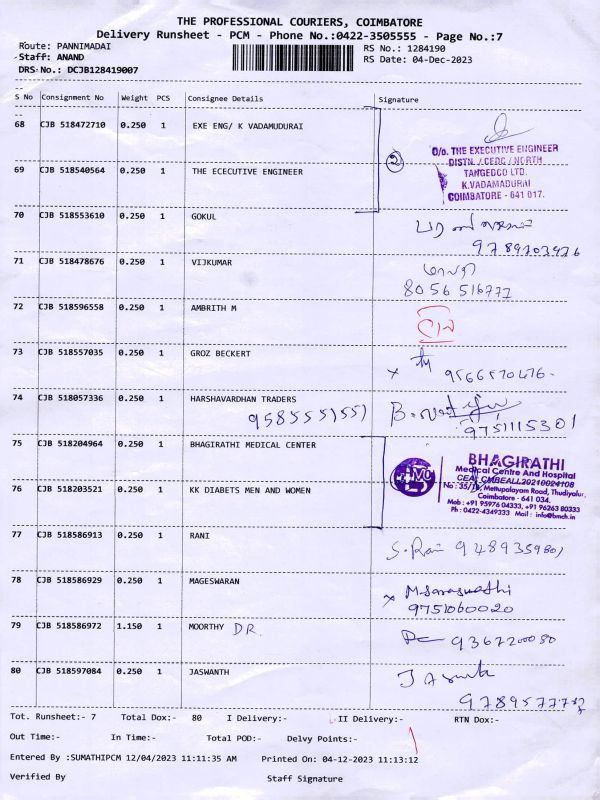 THE PROFESSIONAL COURIERS, COIMBATORE
Delivery Runsheet - PCM - Phone No.:0422-3505555 - Page No.:7
Route: PANNIMADAI RS No.: 1284190
Staff: ANAND RS Date: 04-Dec-2023
DRS No.: DCJB128419007
S No Consignment No Weight PCS Consignee Details Signature
68 CJB 518472710 0.250 1 EXE ENG/ K VADAMUDURAI
2 O/o. THE EXECUTIVE ENGINEER
DISTN. / CEDC / NORTH
69 CJB 518540564 0.250 1 THE ECECUTIVE ENGINEER TANGEDCO LTD.
K.VADAMADURAI
COIMBATORE - 641 017.
70 CJB 518553610 0.250 1 GOKUL
71 CJB 518478676 0.250 1 VIJKUMAR
8056516777
72 CJB 518596558 0.250 1 AMBRITH M
73 CJB 518557035 0.250 1 GROZ BECKERT
x 9566570476.
74 CJB 518057336 0.250 1 HARSHAVARDHAN TRADERS
9585551551 9751115301
75 CJB 518204964 0.250 1 BHAGIRATHI MEDICAL CENTER
BHAGIRATHI
Medical Centre And Hospital
76 CJB 518203521 0.250 1 KK DIABETS MEN AND WOMEN
Mettupalayam Road, Thudiyalur,
Coimbatore - 641 034.
Mob : +91 95976 04333, +91 96263 80333
Ph : 0422-4349333 Mail : info@bmch.in
77 CJB 518586913 0.250 1 RANI S. Rani 9489359801
78 CJB 518586929 0.250 1 MAGESWARAN x M. Saraswathi
9751060020
79 CJB 518586972 1.150 1 MOORTHY DR. 936720080
80 CJB 518597084 0.250 1 JASWANTH
Tot. Runsheet:- 7 Total Dox:- 80 I Delivery:- II Delivery:- RTN Dox:-
Out Time:- In Time:- Total POD:- Delvy Points:-
Entered By :SUMATHIPCM 12/04/2023 11:11:35 AM Printed On: 04-12-2023 11:13:12
Verified By Staff Signature